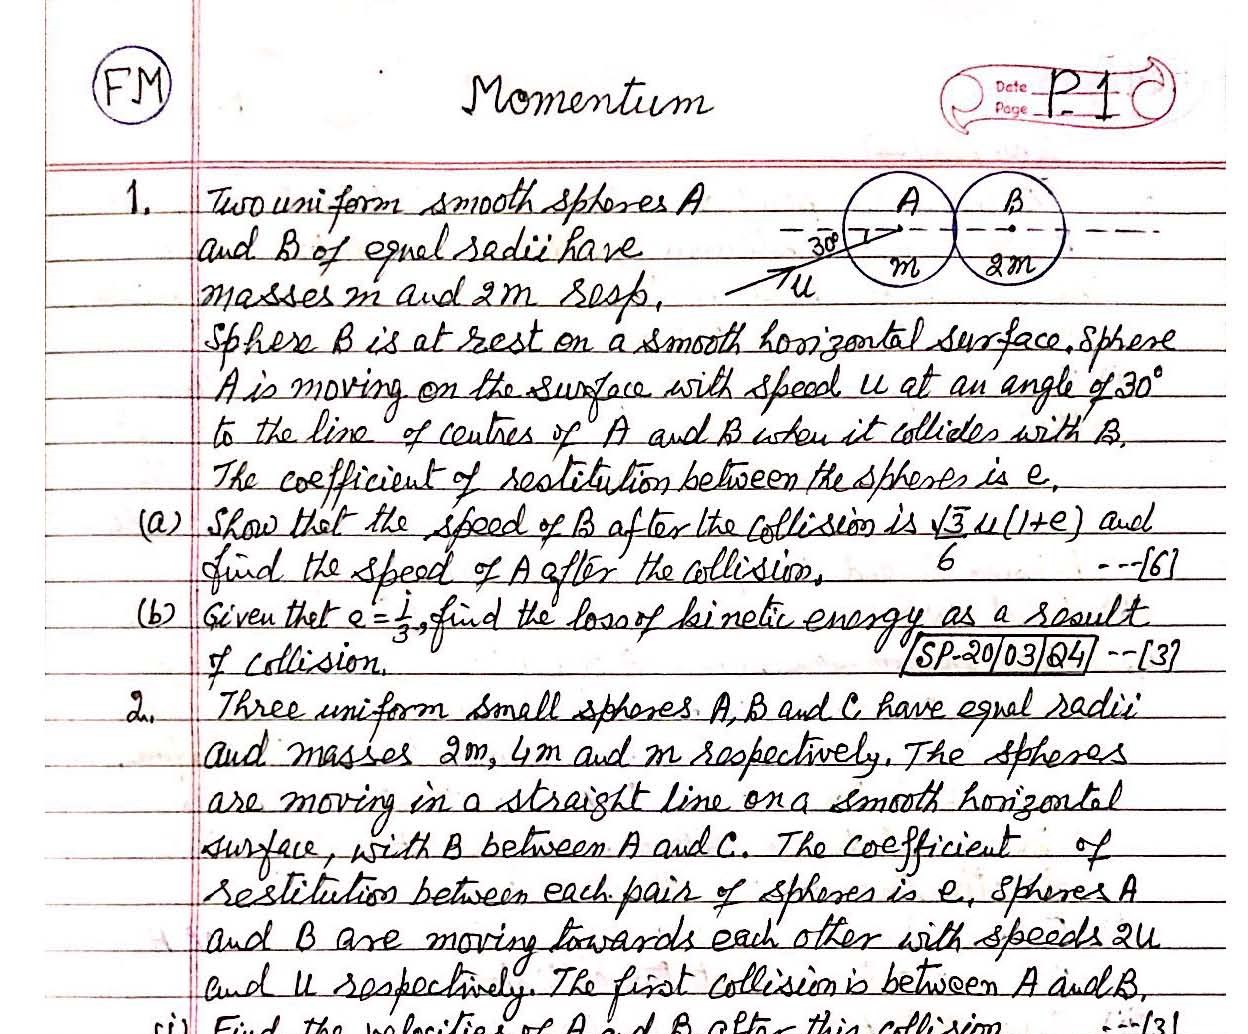 FM
Momentum
Date
Page P-1
1. Two uniform smooth spheres A
and B of equal radii have
masses m and 2m resp.
A B
30°
m 2m
u
Sphere B is at rest on a smooth horizontal surface. Sphere
A is moving on the surface with speed u at an angle of 30°
to the line of centres of A and B when it collides with B.
The coefficient of restitution between the spheres is e.
(a) Show that the speed of B after the collision is √3/6 u(1+e) and
find the speed of A after the collision. ---[6]
(b) Given that e = 1/3, find the loss of kinetic energy as a result
of collision. SP-20/03/Q4 --[3]
2. Three uniform small spheres A, B and C have equal radii
and masses 2m, 4m and m respectively. The spheres
are moving in a straight line on a smooth horizontal
surface, with B between A and C. The coefficient of
restitution between each pair of spheres is e. Spheres A
and B are moving towards each other with speeds 2u
and u respectively. The first collision is between A and B.
(i) Find the velocities of A and B after this collision --[3]